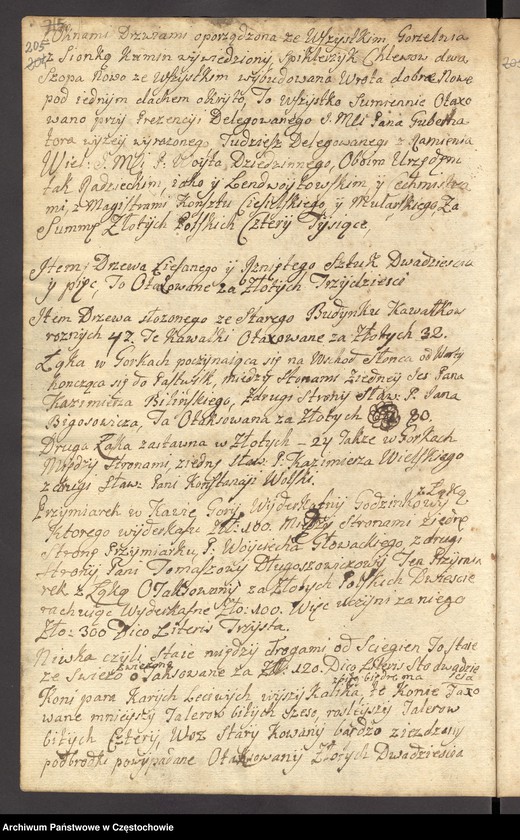 715
205
Winami Drzwiami oporządzona ze Wszystkim, Gorzelnia
z Sionką Kumin wywiedziony, Spiklerzyk Chlewow dwa
Szopa Nowo ze Wszystkim wybudowana Wrota dobre Nowe
pod iednym dachem okryto, To Wszystko Sumiennie Otaxo
wano przy Prezencyi Delegowanego J. Mci Pana Guberna
tora wyzey wyrazonego, Tudziesz Delegowanego z Ramienia
Wiel: J. Mci P. Woyta Dziedzicznego, Oboim Urzędom
tak Radzieckim, iako y Lendwoytowskim y Cechmistrza
mi, z Magistrami Konsztu Ciesielskiego, y Mularskiego, Za
Summę Złotych Polskich Cztery Tysiące,
Item, Drzewa Ciesanego y Rzniętego Sztuk Dwadziescia
y pięc, To Otaxowane za Złotych Trzydziesci
Item Drzewa złozonego ze Starego Budynku Kawałkow
roznych 47. Te Kawałki Otaxowane za Złotych 32.
Łąka w Gorkach poczynaiąca się na Wschod Słonca od
konczącą się do Pastwisk, między Stronami z iedney Ses Pana
Kazimierza Bilińskiego, z drugi Strony Sław: P. Pana
Bigosowicza, Ta Otaksowana za Złotych 80.
Druga Łąka zastawna w Złotych - 24 Także w Gorkach
Między Stronami, z iedny Sław: P. Kazimierza Wielskiego
z drugi Sław: Pani Konstancyi Wolski.
Przymiarek w Kawie Gory, Wyderkafny Godzinkowy z Łąką
Ktorego wyderkafu Zł: 100. Między Stronami z iedne
Stronę Przymiarku P. Woyciecha Głowackiego, z drugi
Strony Pani Tomaszowy Długoszowiczowy Ten Przymia
rek z Łąką Otaksowany za Złotych Polskich Dwiescie
rachuiąc Wyderkafne Zło: 100. Więc uczyni za niego
Zło: 300 Dico Literis Trzysta.
Niwka czyli Staie między drogami od Sciegien To staie
ze Swiezo zwieziono Otaksowane za Zł: 120. Dico Literis Sto dwadzie
scia
Koni para Karych Leciwych, wyszy Kalika, zbite biedre ma Te Konie Taxo
wane mnieyszy Talerow bitych Szesc, rosleyszy Talerow
bitych Cztery, Woz Stary Kowany bardzo ziezdzony
podbrodki powypadane Otaksowany Złotych Dwadziescia
Archiwum Państwowe w Częstochowie